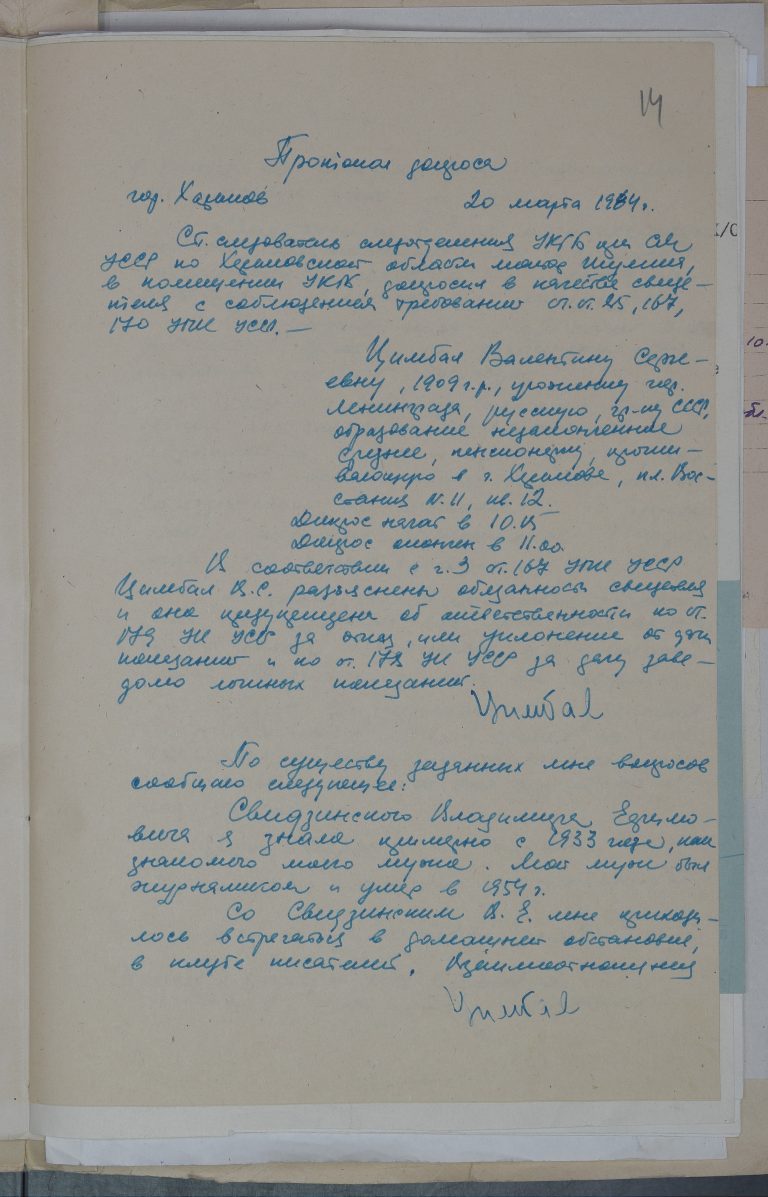 14
Протокол допроса
гор. Харьков 20 марта 1964 г.
Ст. следователь следотделения УКГБ при СМ
УССР по Харьковской области майор Шумилин,
в помещении УКГБ, допросил в качестве свиде-
теля с соблюдением требований ст.ст. 85, 167,
170 УПК УССР. —
Цимбал Валентину Серге-
евну, 1909 г.р., уроженку гор.
Ленинграда, русскую, гр-ку СССР,
образование незаконченное
среднее, пенсионерку, прожи-
вающую в г. Харькове, пл. Вос-
стания N. 11, кв. 12.
Допрос начат в 10.15
Допрос окончен в 11.00
В соответствии с ч. 3 ст. 167 УПК УССР
Цимбал В.С. разъяснены обязанности свидетеля
и она предупреждена об ответственности по ст.
179 УК УССР за отказ, или уклонение от дачи
показаний и по ст. 178 УК УССР за дачу заве-
домо ложных показаний.
Цимбал
По существу заданных мне вопросов
сообщаю следующее:
Свидзинского Владимира Ефимо-
вича я знала примерно с 1933 года, как
знакомого моего мужа. Мой муж был
журналистом и умер в 1954 г.
Со Свидзинским В. Е. мне приходи-
лось встречаться в домашней обстановке,
в клубе писателей. Взаимоотношения
Цимбал